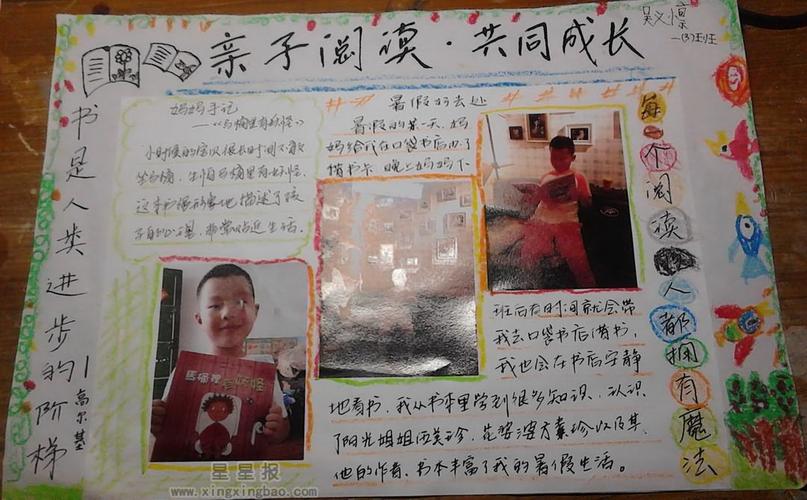 亲子阅读·共同成长
一(3)班
书是人类进步的阶梯
高尔基
妈妈手记
——《马桶里有妖怪》
小时候的宝贝很长时间不喜欢
坐马桶,生怕马桶里有妖怪,
这本书很形象地描述了孩
子的心理,非常贴近生活。
暑假好去处
暑假的某一天,妈
妈给我在口袋书店办了
借书卡,晚上妈妈下
班后有时间就会带
我去口袋书店借书,
我也会在书店安静
地看书,我从书本里学到很多知识,认识
了阳光姐姐伍美珍,花婆婆方素珍以及其
他的作者,书本丰富了我的暑假生活。
每一个阅读的人都拥有魔法
馬桶裡有妖怪
星星报
www.xingxingbao.com